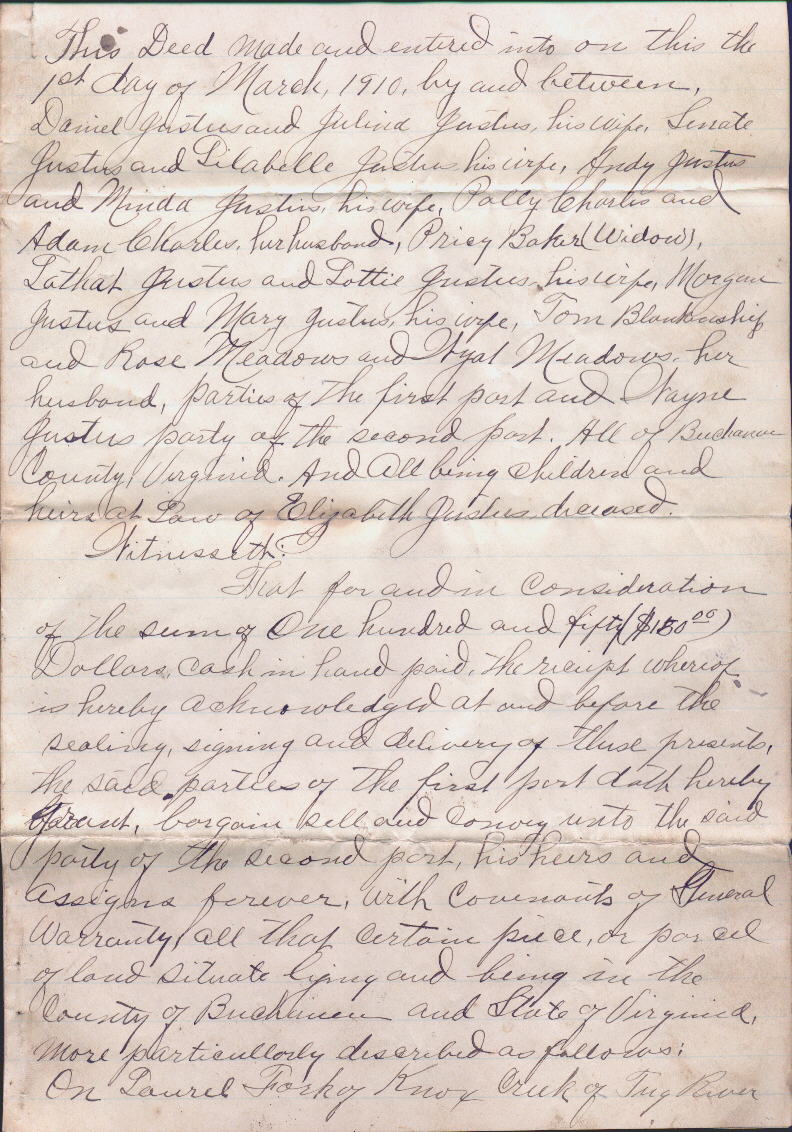 This Deed made and entered into on this the
1st day of March, 1910, by and between,
Daniel Justus and Julina Justus, his wife, Senate
Justus and Lilabelle Justus his wife, Andy Justus
and Minda Justus, his wife, Polly Charles and
Adam Charles, her husband, Pricy Baker (Widow),
Lathat Justus and Lottie Justus, his wife, Morgan
Justus and Mary Justus, his wife, Tom Blankenship
and Rose Meadows and Wyat Meadows, her
husband, parties of the first part and Wayne
Justus party of the second part. All of Buchanan
County, Virginia. And All being children and
heirs at Law of Elizabeth Justus, deceased.
Witnesseth:
That for and in consideration
of the sum of One hundred and fifty ($150.00)
Dollars, cash in hand paid, the reciept whereof
is hereby acknowledged at and before the
sealing, signing and delivery of these presents,
the said parties of the first part doth hereby
grant, bargain sell and convey unto the said
party of the second part, his heirs and
assigns forever, with Covenants of General
Warranty, all that certain piece, or parcel
of land situate lying and being in the
County of Buchanan and State of Virginia,
more particullorly described as follows:
On Laurel Fork of Knox Creek of Tug River